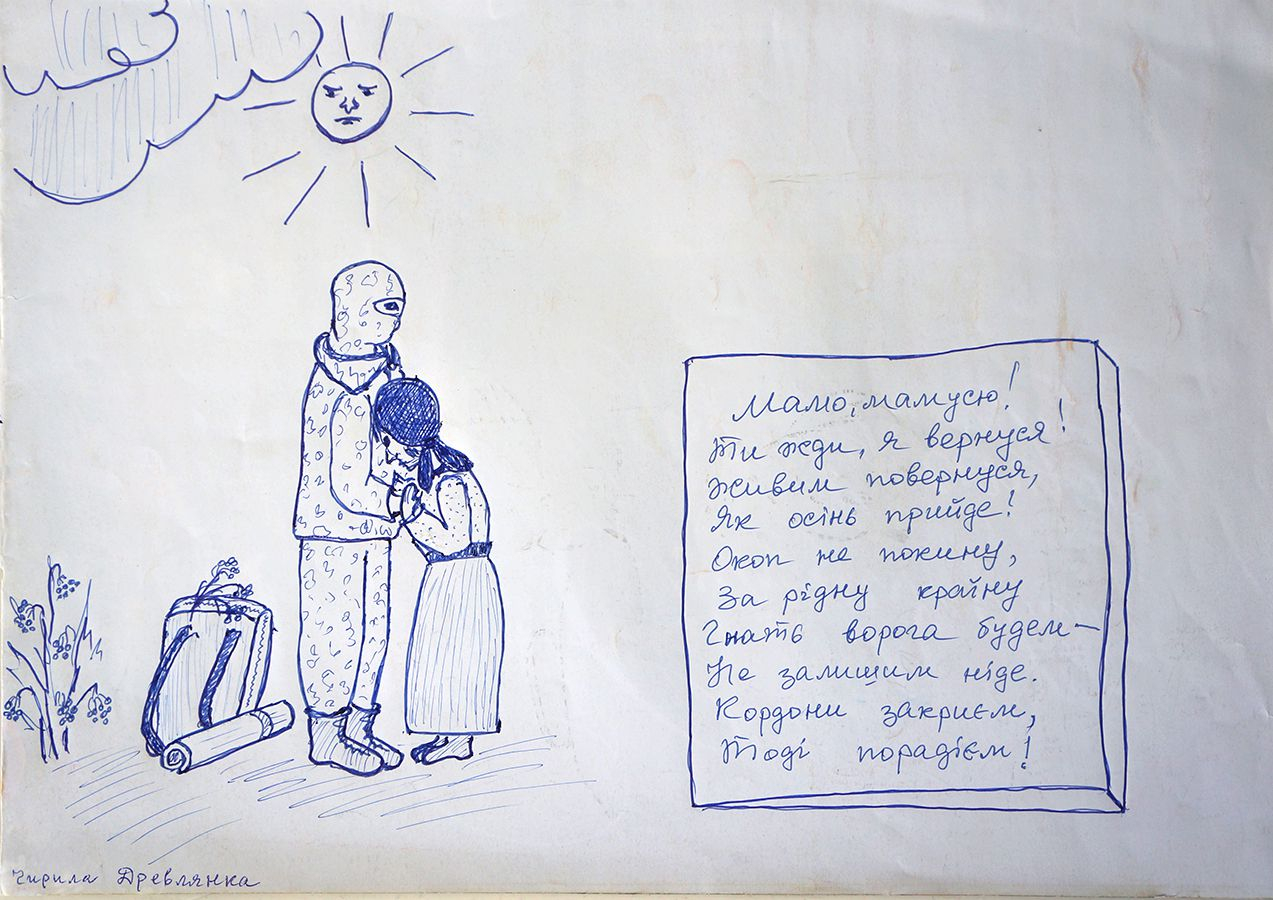 Мамо, мамусю!
Ти жди, я вернуся!
Живим повернуся,
Як осінь прийде!
Окоп не покину,
За рідну країну
Гнать ворога будем—
Не залишим ніде.
Кордони закриєм,
Тоді порадієм!
Чирила Древлянка